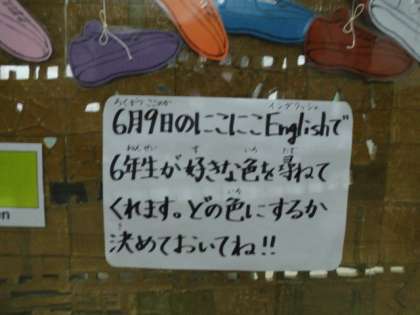 ろくがつ ここのか イングリッシュ
6月9日のにこにこEnglishで
ねんせい す いろ たず
6年生が好きな色を尋ねて
いろ
くれます。どの色にするか
き
決めておいてね!!
en